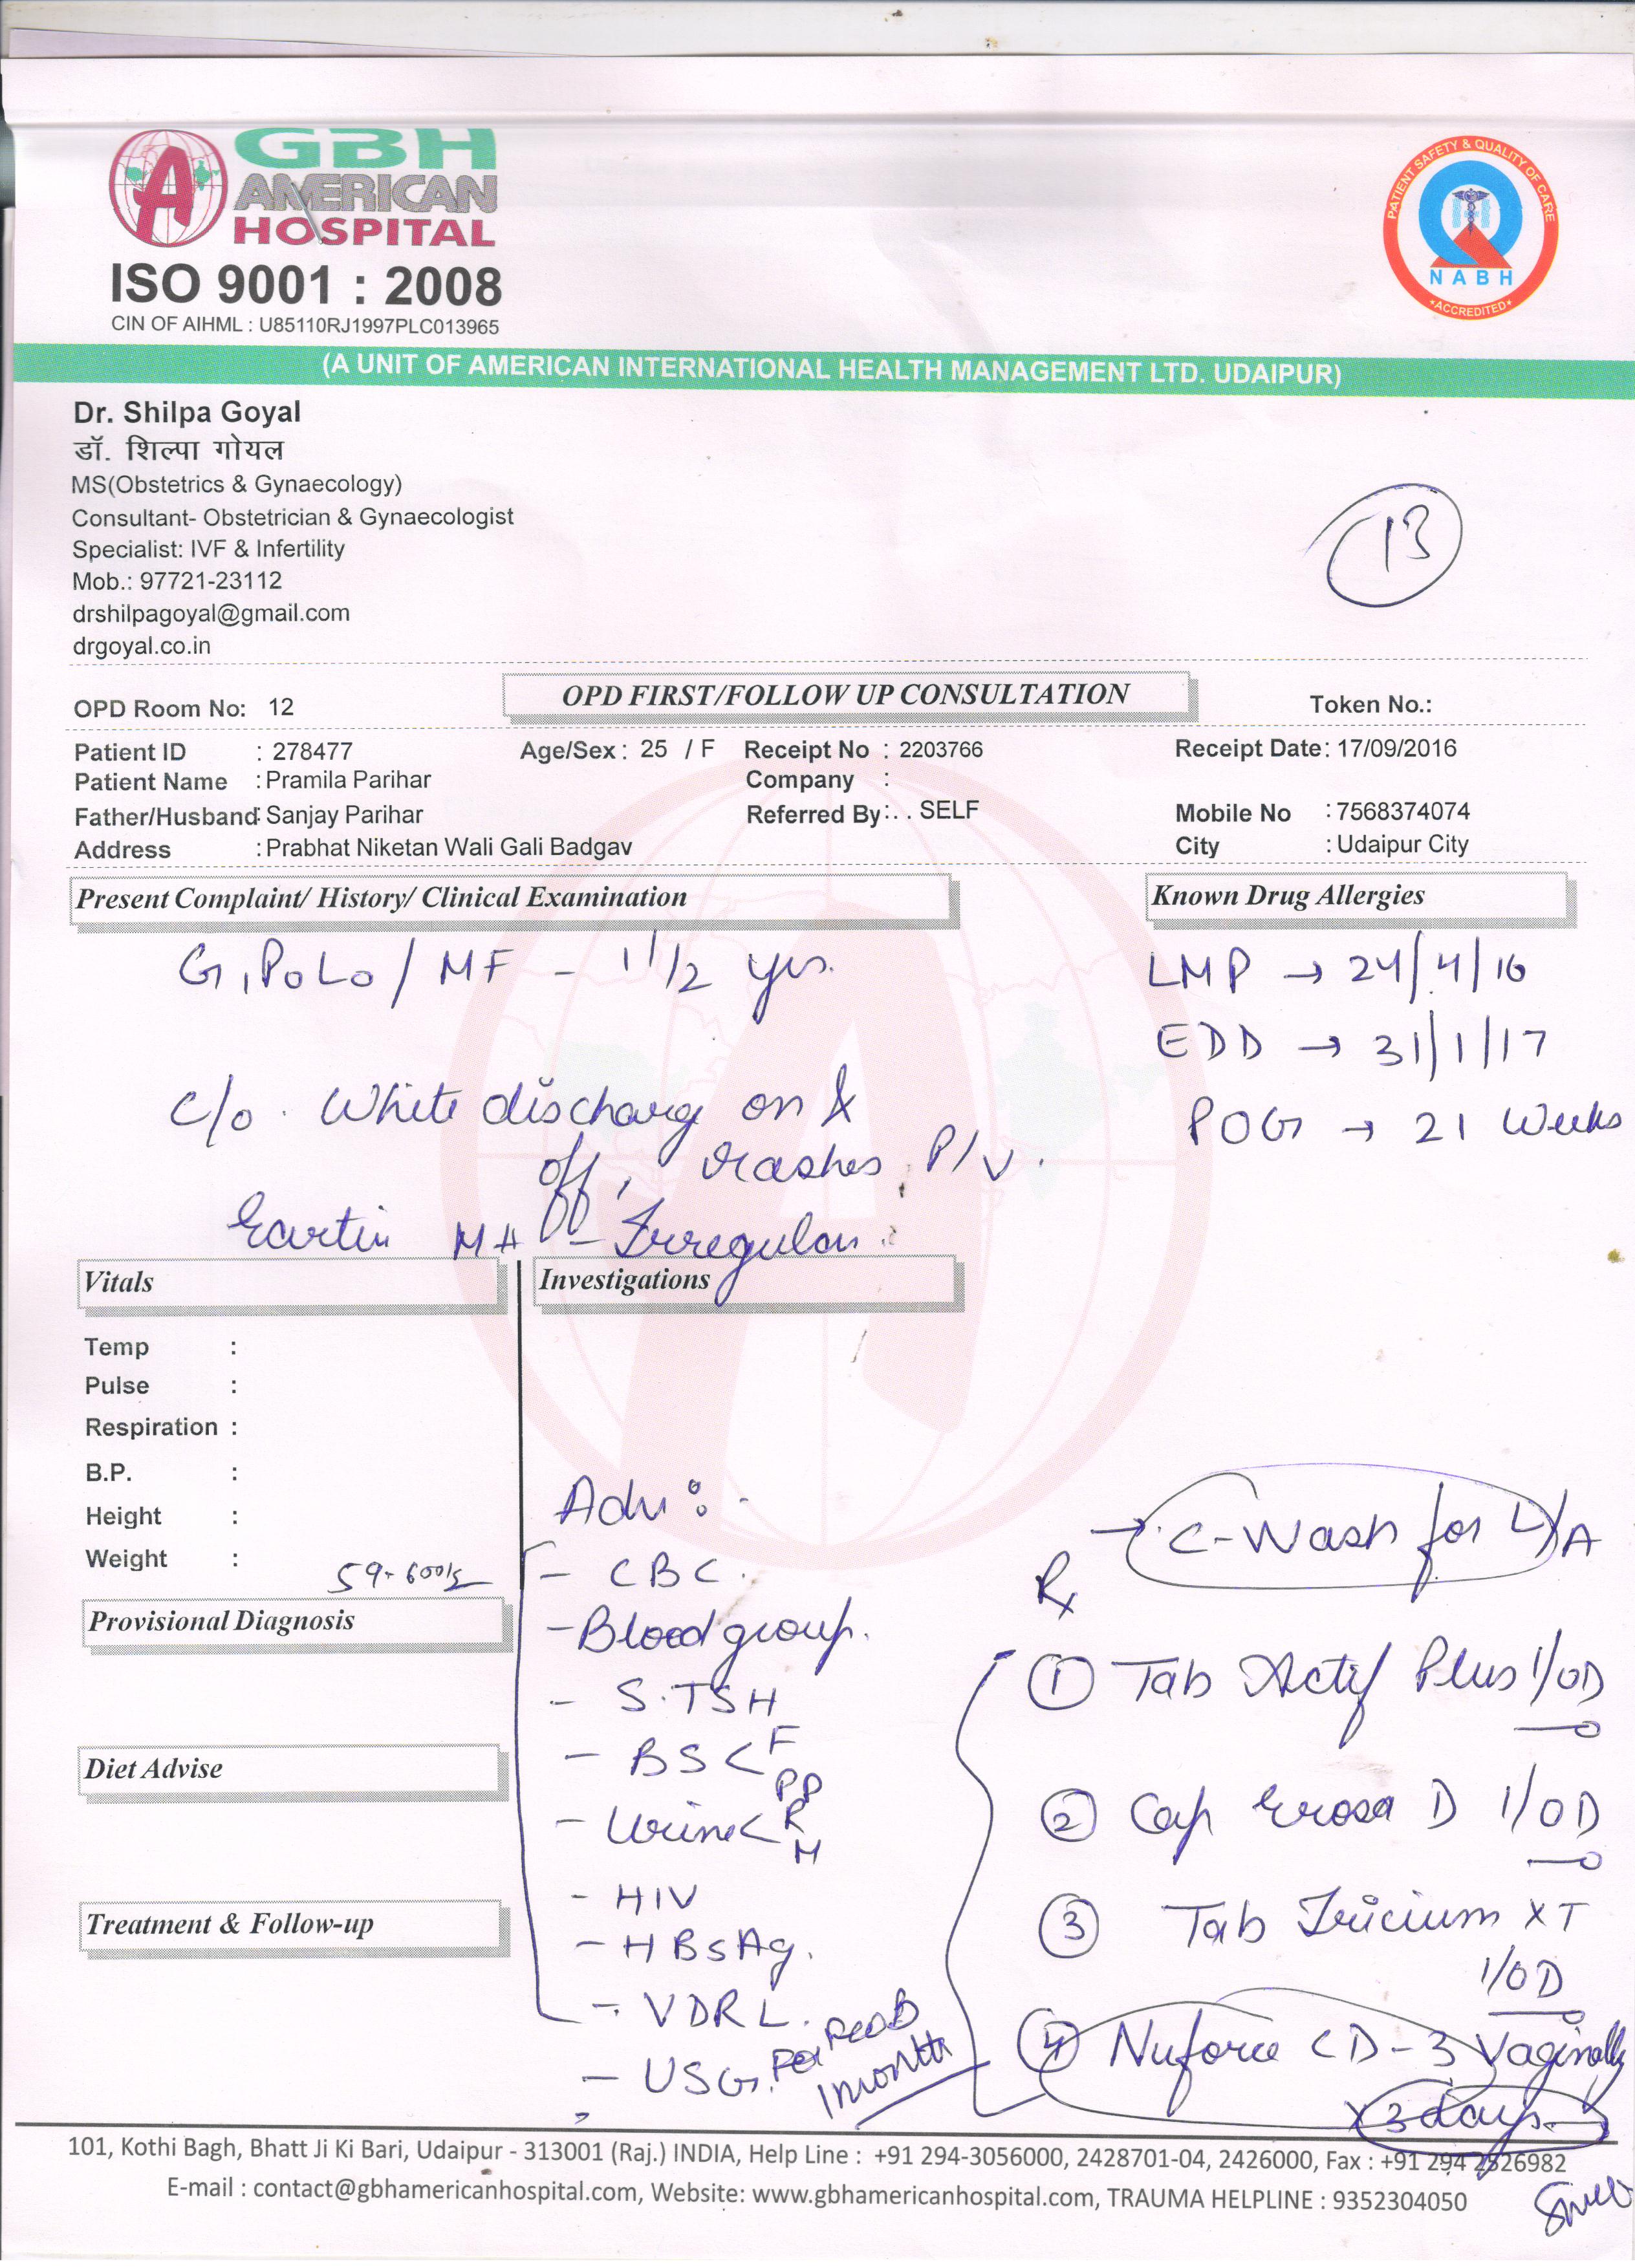 GBH
AMERICAN
HOSPITAL
ISO 9001 : 2008
CIN OF AIHML : U85110RJ1997PLC013965
PATIENT SAFETY & QUALITY OF CARE
NABH
ACCREDITED
(A UNIT OF AMERICAN INTERNATIONAL HEALTH MANAGEMENT LTD. UDAIPUR)
Dr. Shilpa Goyal
डॉ. शिल्पा गोयल
MS(Obstetrics & Gynaecology)
Consultant- Obstetrician & Gynaecologist
Specialist: IVF & Infertility
Mob.: 97721-23112
drshilpagoyal@gmail.com
drgoyal.co.in
13
OPD Room No: 12 OPD FIRST/FOLLOW UP CONSULTATION Token No.:
Patient ID : 278477 Age/Sex : 25 / F Receipt No : 2203766 Receipt Date: 17/09/2016
Patient Name : Pramila Parihar Company :
Father/Husband: Sanjay Parihar Referred By:. . SELF Mobile No : 7568374074
Address : Prabhat Niketan Wali Gali Badgav City : Udaipur City
Present Complaint/ History/ Clinical Examination Known Drug Allergies
G1P0L0 / MF - 1 1/2 yrs. LMP → 24/4/16
EDD → 31/1/17
c/o. White discharg on & POG → 21 Weeks
off, rashes P/V.
MH - Irregular.
Vitals Investigations
Temp :
Pulse :
Respiration :
B.P. :
Height :
Weight :
59-60
Provisional Diagnosis
Diet Advise
Treatment & Follow-up
Adv:-
- CBC.
- Blood group.
- S.TSH
- BS < F PP
- Urine < R M
- HIV
- HBsAg.
- VDRL.
- USG.
1 month
→ C-Wash for L/A
Rx
① Tab Actif Plus 1/OD
② Cap D 1/OD
③ Tab XT
1/OD
④ Nuforce CD-3 Vaginally
x 3 days.
101, Kothi Bagh, Bhatt Ji Ki Bari, Udaipur - 313001 (Raj.) INDIA, Help Line : +91 294-3056000, 2428701-04, 2426000, Fax : +91 294 2526982
E-mail : contact@gbhamericanhospital.com, Website: www.gbhamericanhospital.com, TRAUMA HELPLINE : 9352304050